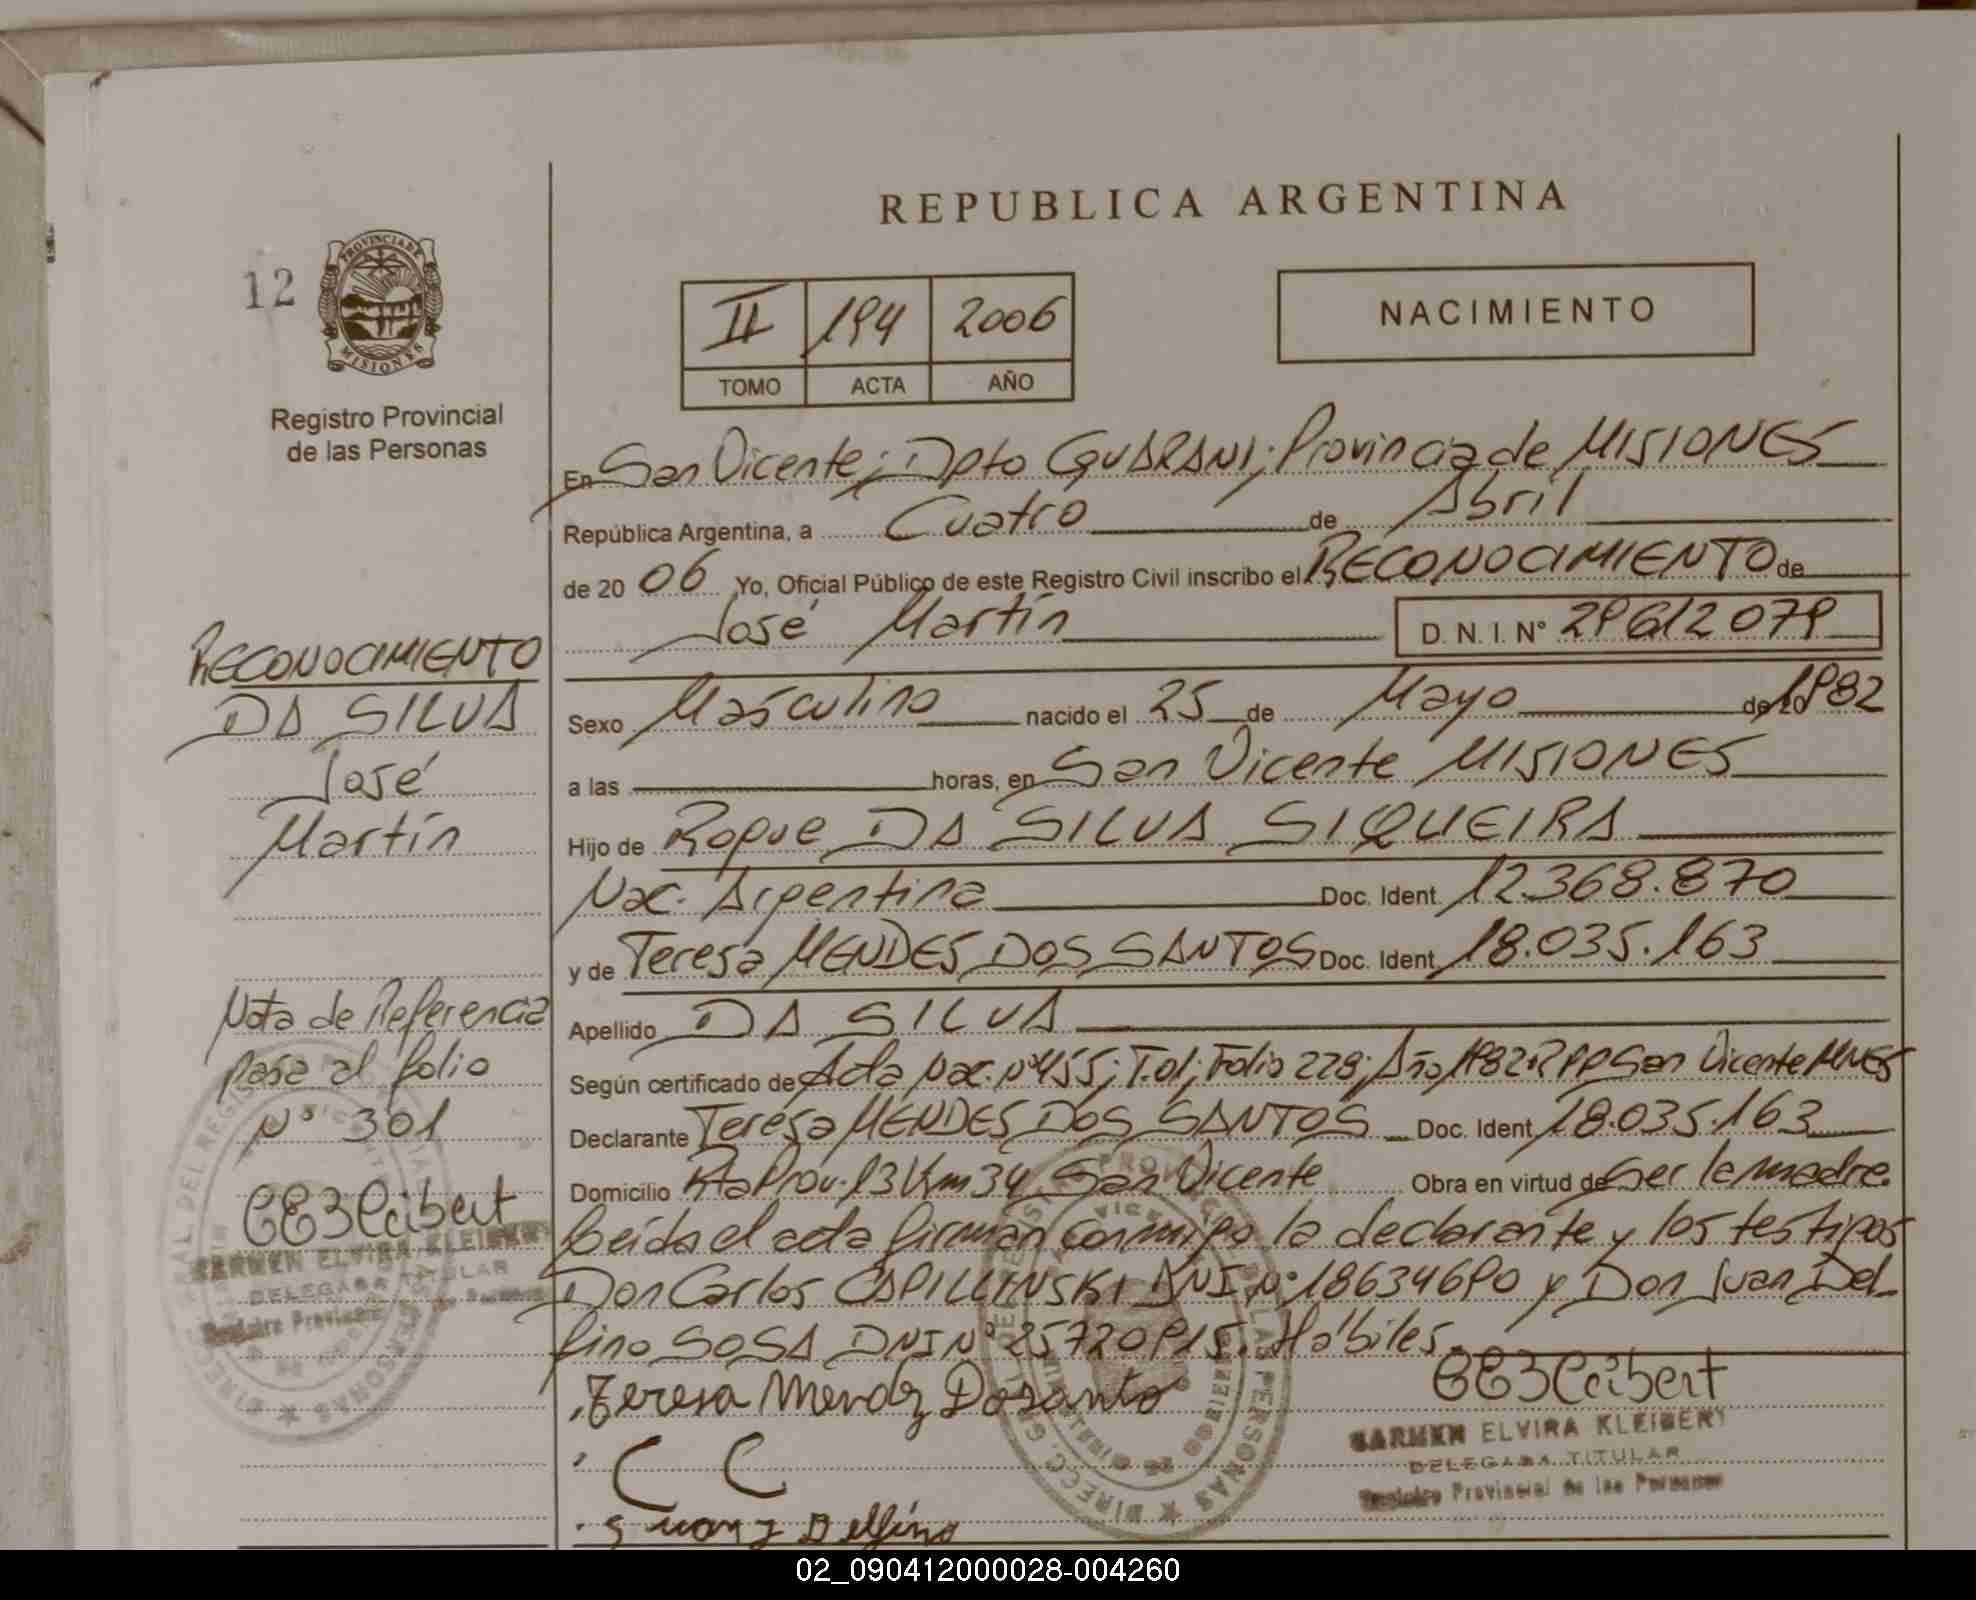 REPUBLICA ARGENTINA
12
PROVINCIA DE
MISIONES
Registro Provincial
de las Personas
II 194 2006
TOMO ACTA AÑO
NACIMIENTO
En San Vicente; Dpto GUARANI; Provincia de MISIONES
República Argentina, a Cuatro de Abril
de 20 06 Yo, Oficial Público de este Registro Civil inscribo el RECONOCIMIENTO de
José Martín D. N. I. N° 29612079
Sexo Masculino nacido el 25 de Mayo de 1982
a las horas, en San Vicente MISIONES
Hijo de Roque DA SILVA SIQUEIRA
Nac. Argentina Doc. Ident. 12.368.870
y de Teresa MENDES DOS SANTOS Doc. Ident. 18.035.163
Apellido DA SILVA
Según certificado de Acta Nac. N° 455; T.01; Folio 228; Año 1982 RPP San Vicente MNES
Declarante Teresa MENDES DOS SANTOS Doc. Ident. 18.035.163
Domicilio Rta Prov. 13 Km 34 San Vicente Obra en virtud de ser la madre.
Leída el acta firman conmigo la declarante y los testigos
Don Carlos CAPILLINSKI DNI N° 18634690 y Don Juan Del-
fino SOSA DNI N° 25720915. Hábiles.
Teresa Mendz Dosanto
C C
Juan Delfino
CARMEN ELVIRA KLEIBERT
DELEGADA TITULAR
Registro Provincial de las Personas
RECONOCIMIENTO
DA SILVA
José
Martín
Nota de Referencia
pasa al folio
N° 301
CARMEN ELVIRA KLEIBERT
DELEGADA TITULAR
Registro Provincial de las Personas
02_090412000028-004260